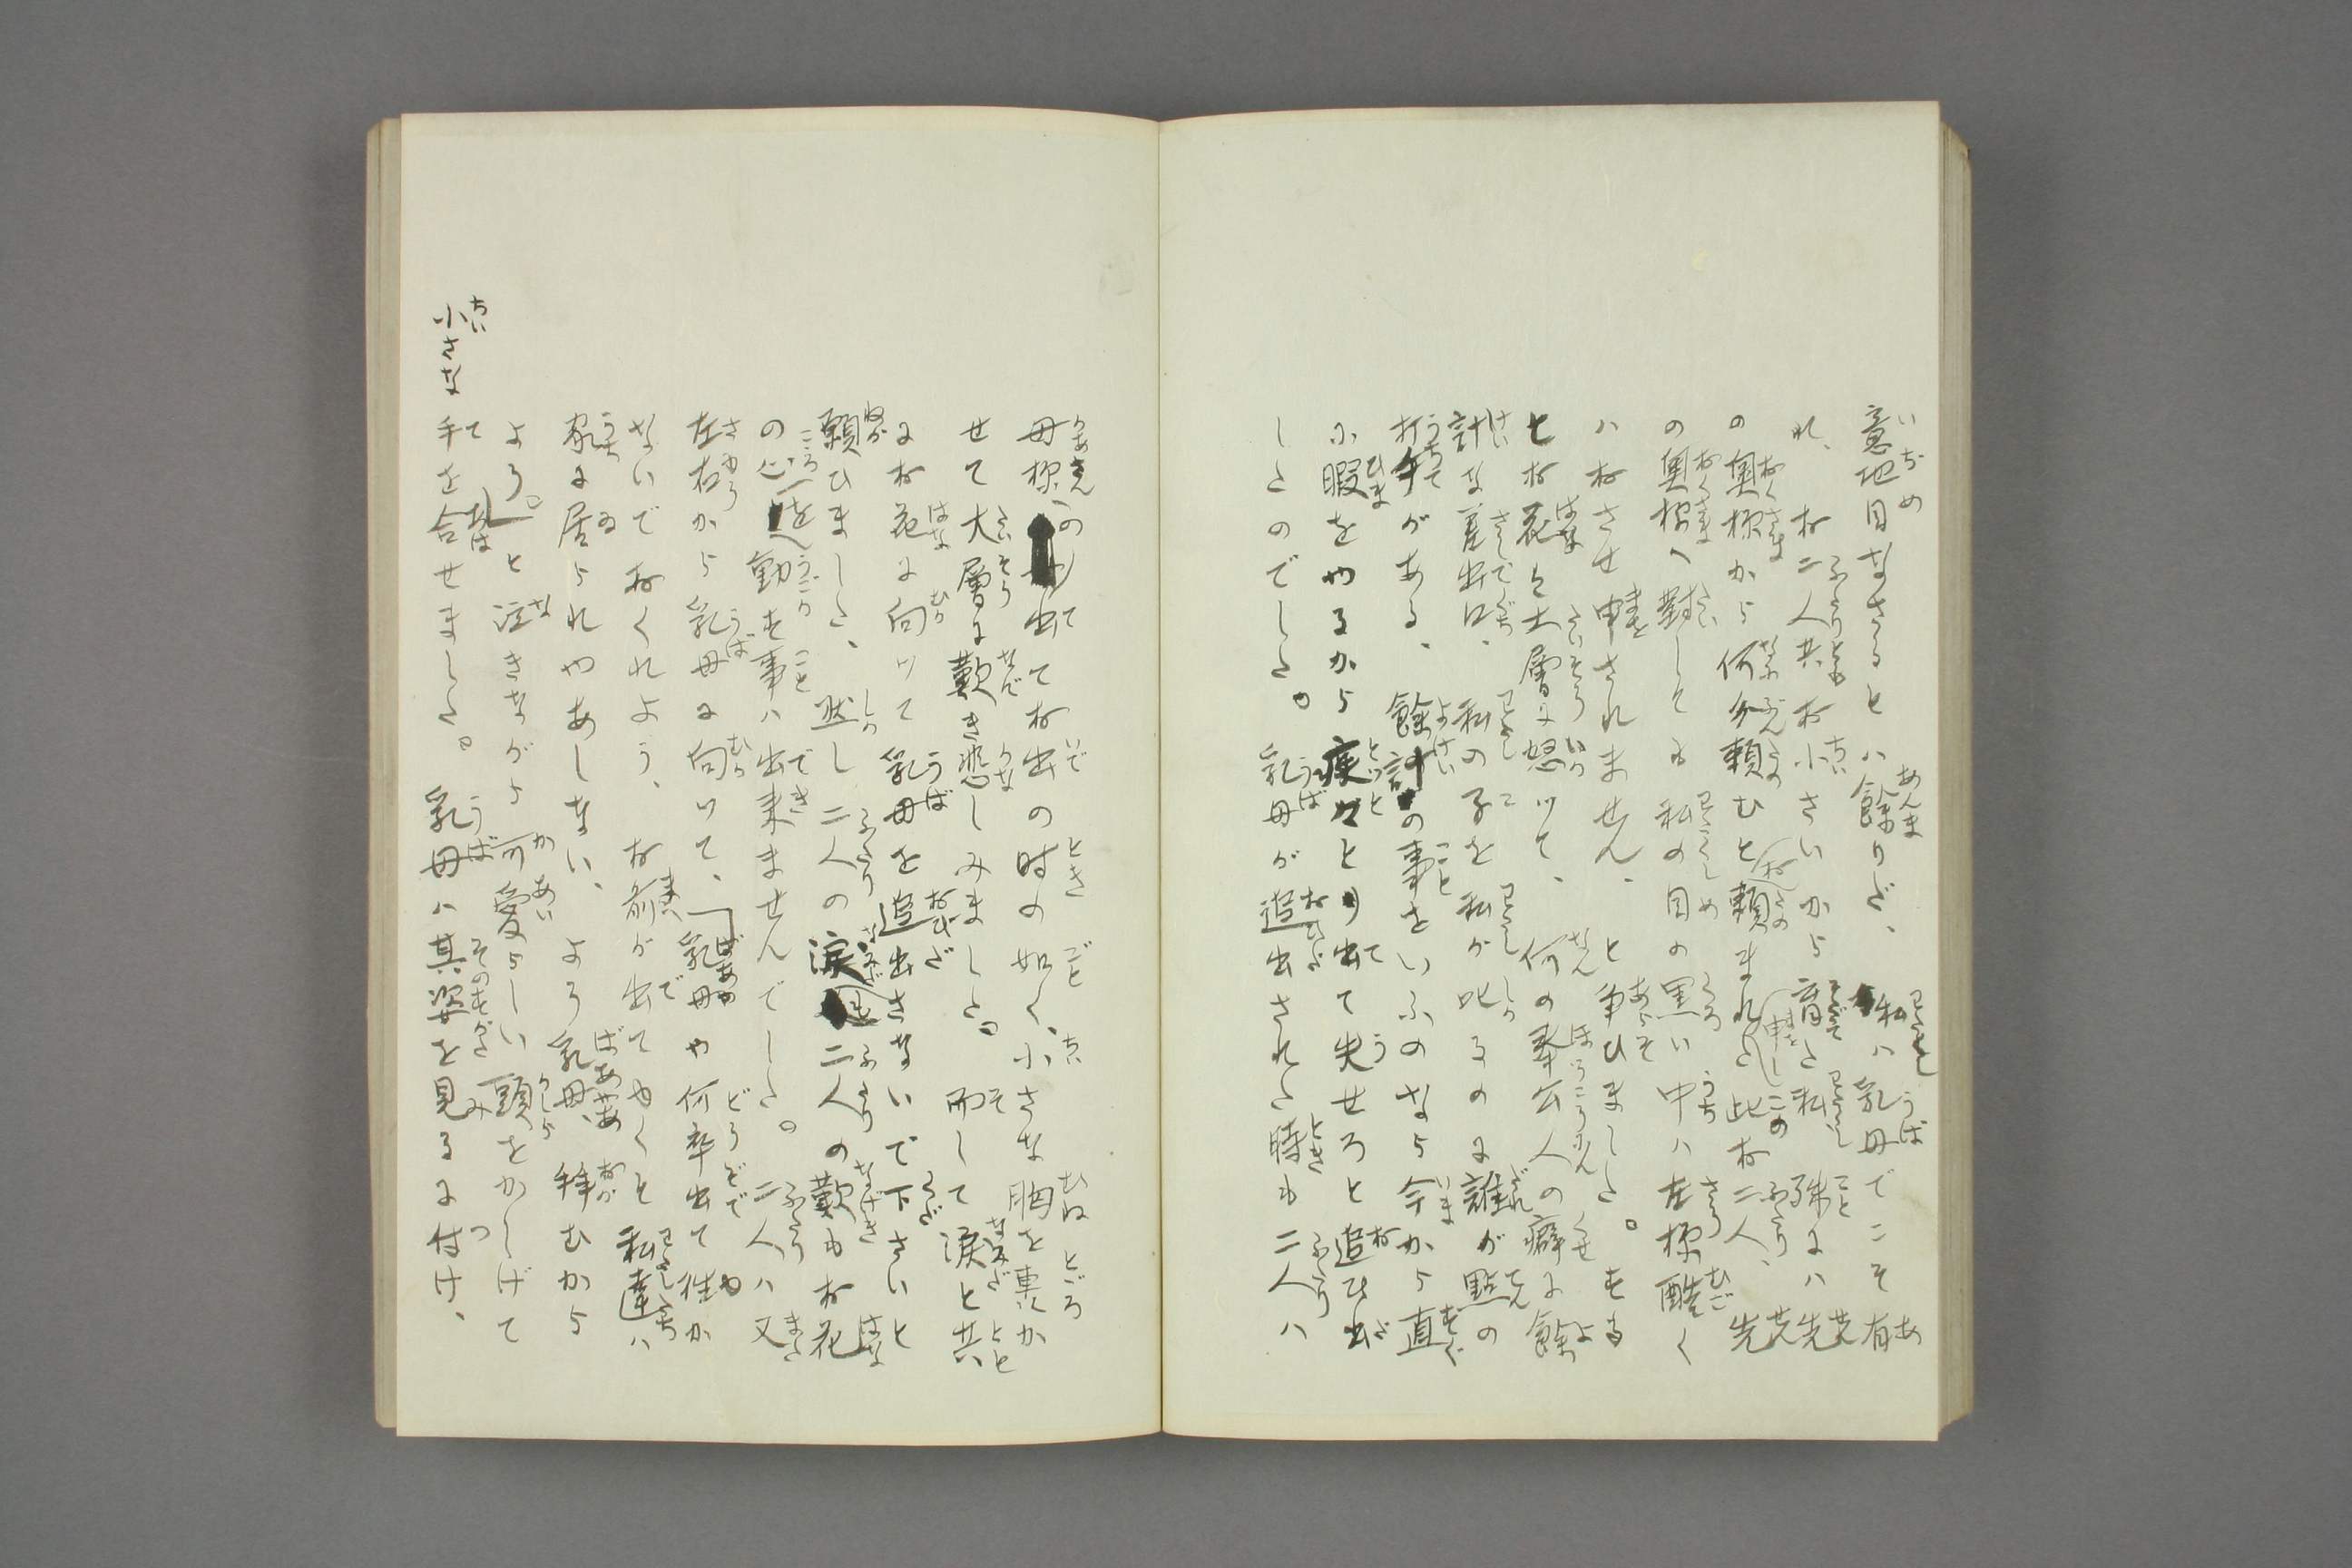 意地目なさるとハ餘りだ、私ハ乳母でこそ有
れ、お二人共お小さいから育て申した私、殊にハ先
の奥様から何分頼むとお頼まれした此お二人、先
の奥様へ對しても私の目の黒い中ハ左様酷く
ハおさせ申されません、と争ひました。する
とお花ハ大層に怒ツて、何の奉公人の癖に餘
計な差出口、私の子を私が叱るのに誰が點の
打手がある、餘計の事をいふのなら今から直
に暇をやるから疾々と出て失せろと追ひ出
したのでした。乳母が追出された時も二人ハ
母様の出てお出の時の如く、小さな胸を裏か
せて大層に歎き悲しみました。而して涙と共
にお花に向ツて乳母を追出さないで下さいと
願ひました、然し二人の涙も二人の歎もお花
の心を動す事ハ出来ませんでした。二人ハ又
左右から乳母に向ツて、「乳母や何卒出て往か
ないでおくれよう、お前が出てゆくと私達ハ
家に居られやあしない、よう乳母、拝むから
よう。」と泣きながら可愛らしい頭をかしげて
小さな手を合せました。乳母ハ其姿を見るに付け、